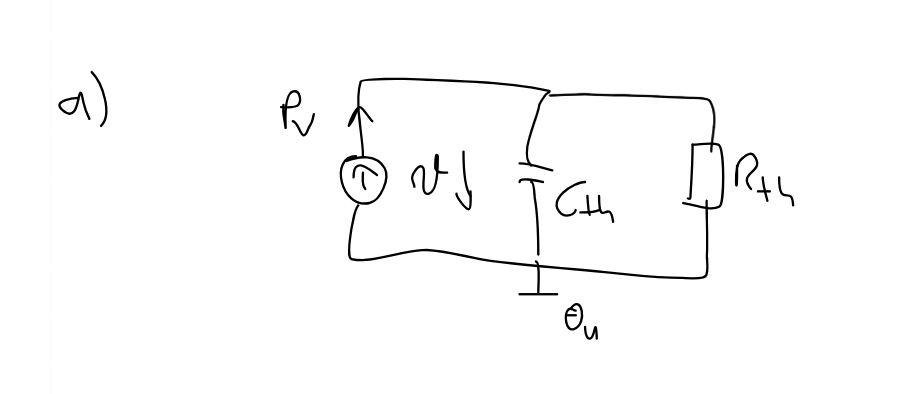 a)
Pv
ϑ
Cth
Rth
Θu